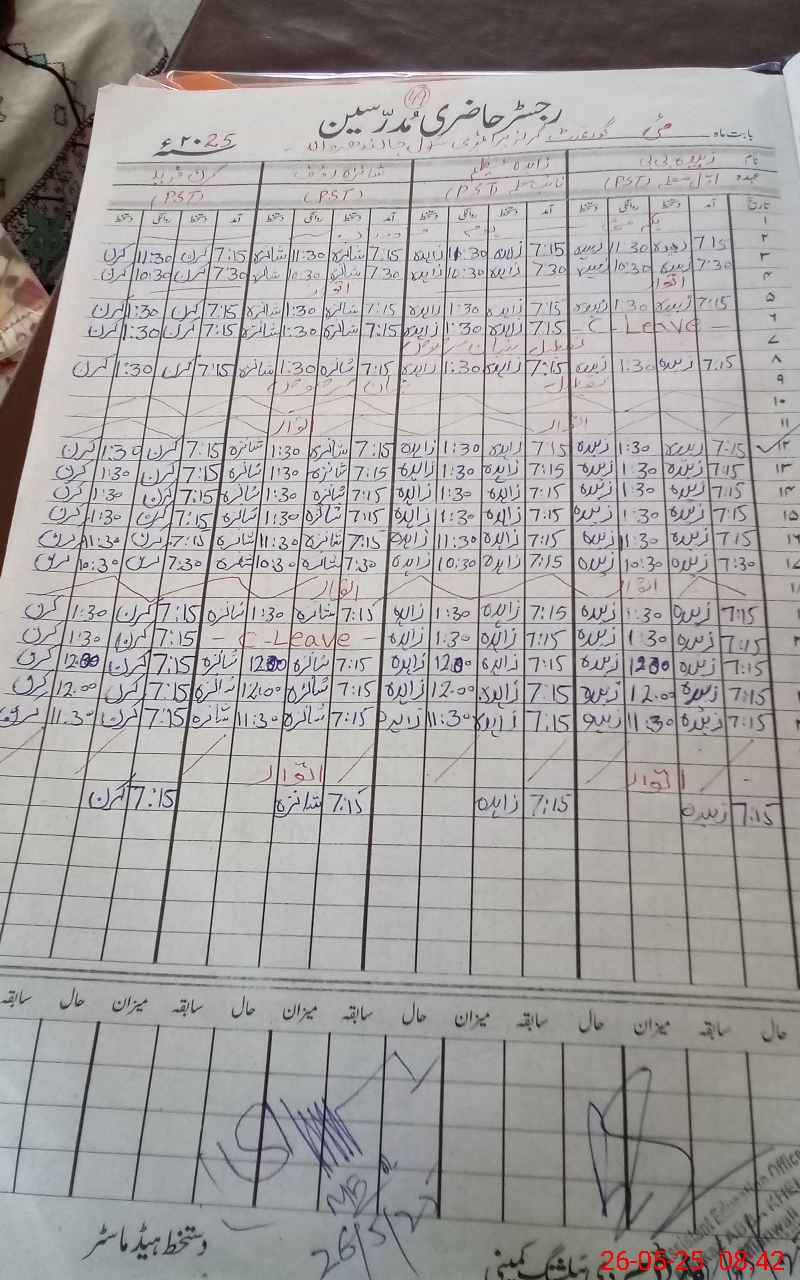 49
رجسٹر حاضری مُدرّسین
بابت ماہ مئی گورنمنٹ گرلز پرائمری سکول ۲۰25ء
نام زبیدہ بی بی زاہدہ شائزہ کرن
عہدہ (PST) (PST) (PST) (PST)
تاریخ آمد دستخط روانگی دستخط آمد دستخط روانگی دستخط آمد دستخط روانگی دستخط آمد دستخط روانگی دستخط
۱
۲ 7:15 زبیدہ 11:30 زبیدہ 7:15 زاہدہ 11:30 زاہدہ 7:15 شائزہ 11:30 شائزہ 7:15 کرن 11:30 کرن
۳ 7:30 زبیدہ 10:30 زبیدہ 7:30 زاہدہ 10:30 زاہدہ 7:30 شائزہ 10:30 شائزہ 7:30 کرن 10:30 کرن
۴ اتوار اتوار
۵ 7:15 زبیدہ 1:30 زبیدہ 7:15 زاہدہ 1:30 زاہدہ 7:15 شائزہ 1:30 شائزہ 7:15 کرن 1:30 کرن
۶ - C - Leave - 7:15 زاہدہ 1:30 زاہدہ 7:15 شائزہ 1:30 شائزہ 7:15 کرن 1:30 کرن
۷ تعطیل
۸ 7:15 زبیدہ 1:30 زبیدہ 7:15 زاہدہ 1:30 زاہدہ 7:15 شائزہ 1:30 شائزہ 7:15 کرن 1:30 کرن
۹ تعطیل
۱۰
۱۱ اتوار اتوار
۱۲ 7:15 زبیدہ 1:30 زبیدہ 7:15 زاہدہ 1:30 زاہدہ 7:15 شائزہ 1:30 شائزہ 7:15 کرن 1:30 کرن
۱۳ 7:15 زبیدہ 1:30 زبیدہ 7:15 زاہدہ 1:30 زاہدہ 7:15 شائزہ 1:30 شائزہ 7:15 کرن 1:30 کرن
۱۴ 7:15 زبیدہ 1:30 زبیدہ 7:15 زاہدہ 1:30 زاہدہ 7:15 شائزہ 1:30 شائزہ 7:15 کرن 1:30 کرن
۱۵ 7:15 زبیدہ 1:30 زبیدہ 7:15 زاہدہ 1:30 زاہدہ 7:15 شائزہ 1:30 شائزہ 7:15 کرن 1:30 کرن
۱۶ 7:15 زبیدہ 11:30 زبیدہ 7:15 زاہدہ 11:30 زاہدہ 7:15 شائزہ 11:30 شائزہ 7:15 کرن 11:30 کرن
۱۷ 7:30 زبیدہ 10:30 زبیدہ 7:15 زاہدہ 10:30 زاہدہ 7:30 شائزہ 10:30 شائزہ 7:30 کرن 10:30 کرن
اتوار اتوار
7:15 زبیدہ 1:30 زبیدہ 7:15 زاہدہ 1:30 زاہدہ 7:15 شائزہ 1:30 شائزہ 7:15 کرن 1:30 کرن
7:15 زبیدہ 1:30 زبیدہ 7:15 زاہدہ 1:30 زاہدہ - C - Leave - 7:15 کرن 1:30 کرن
7:15 زبیدہ 12:00 زبیدہ 7:15 زاہدہ 12:00 زاہدہ 7:15 شائزہ 12:00 شائزہ 7:15 کرن 12:00 کرن
7:15 زبیدہ 12:00 زبیدہ 7:15 زاہدہ 12:00 زاہدہ 7:15 شائزہ 12:00 شائزہ 7:15 کرن 12:00 کرن
7:15 زبیدہ 11:30 زبیدہ 7:15 زاہدہ 11:30 زاہدہ 7:15 شائزہ 11:30 شائزہ 7:15 کرن 11:30 کرن
اتوار اتوار
7:15 زبیدہ 7:15 زاہدہ 7:15 شائزہ 7:15 کرن
حال سابقہ میزان حال سابقہ میزان حال سابقہ میزان حال سابقہ میزان حال سابقہ
Education Office
دستخط ہیڈ ماسٹر
26/5/2
کمیٹی
26-05-25 08:42